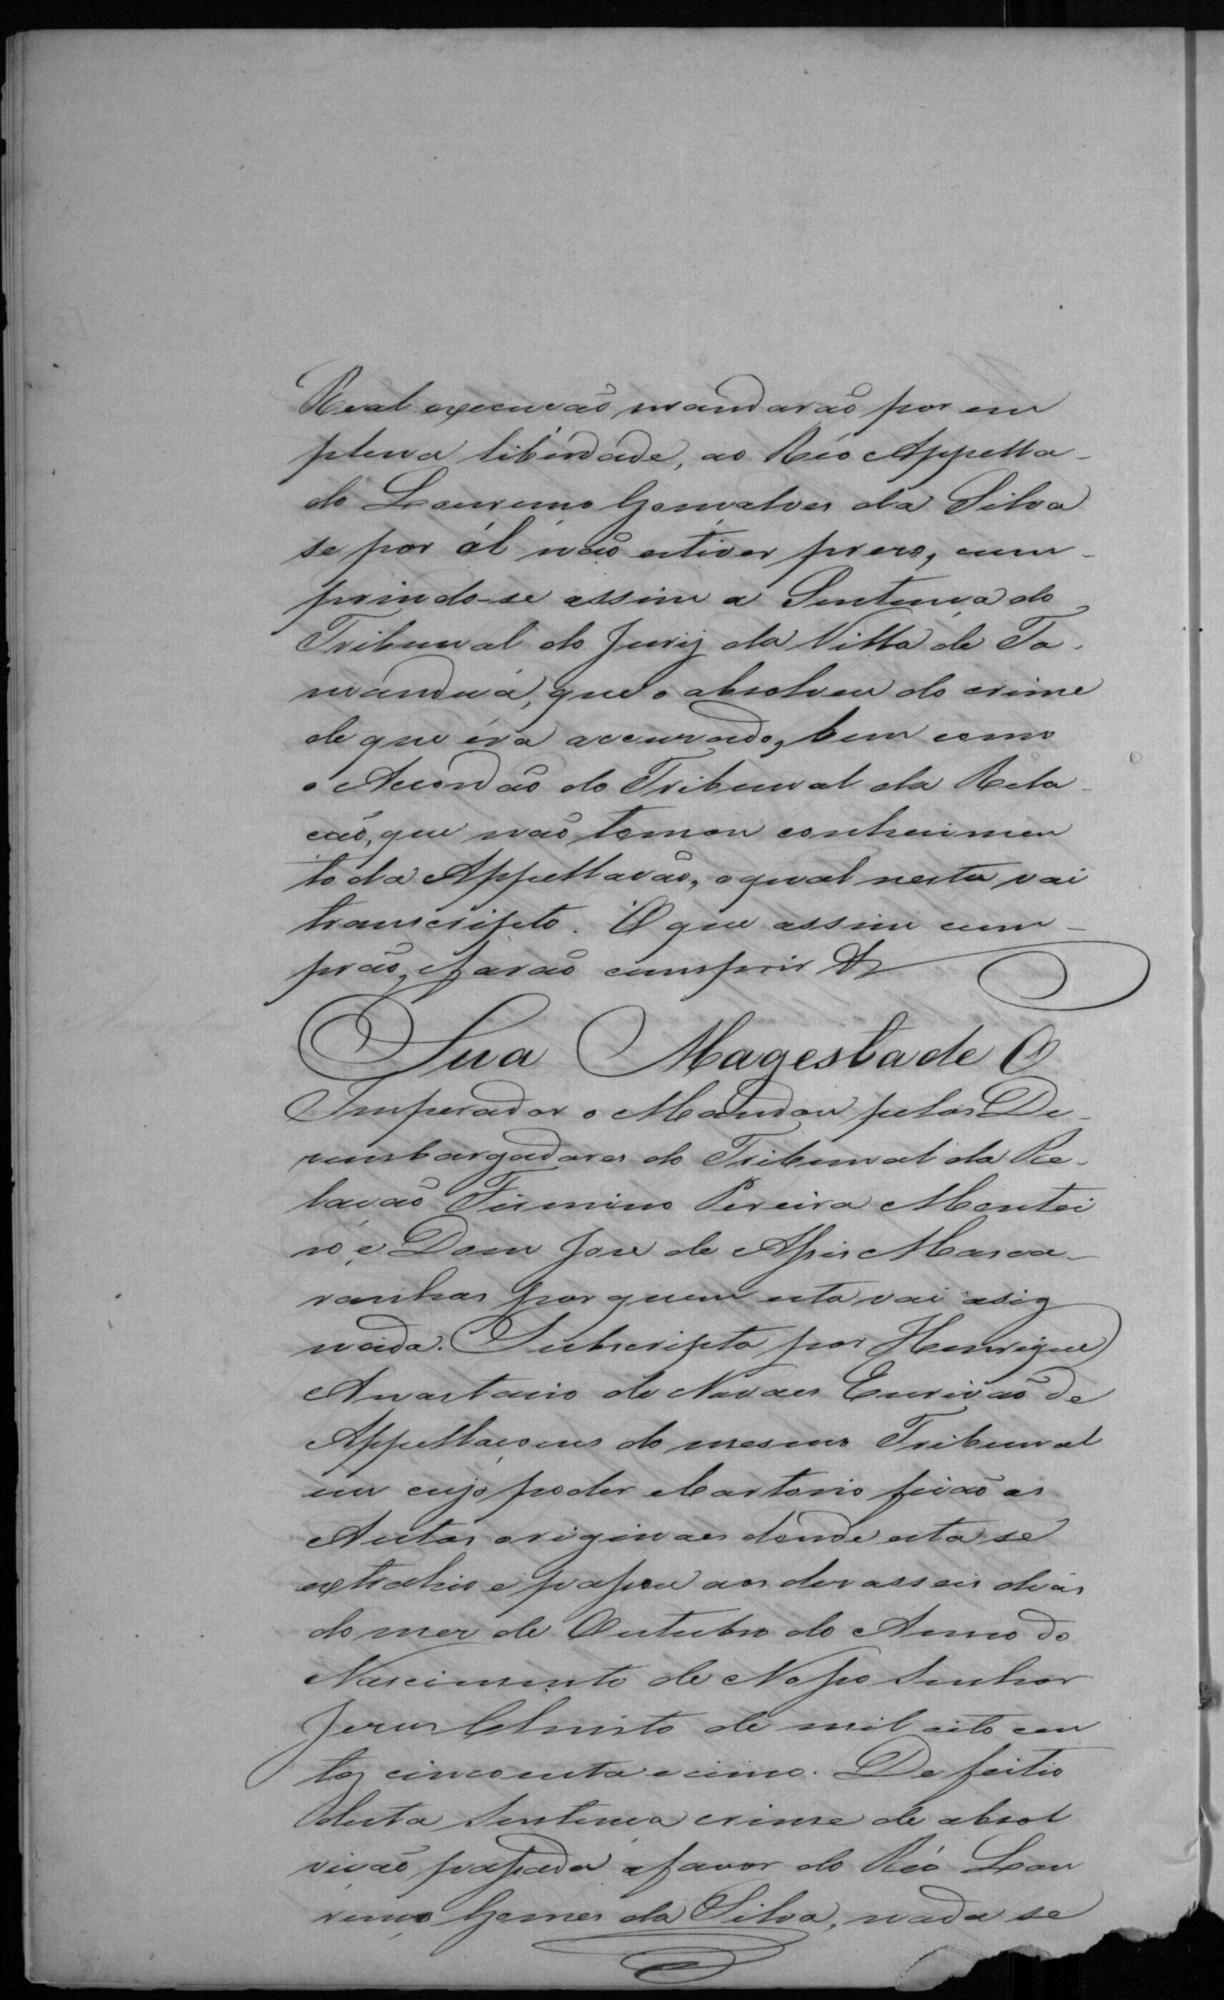 Real execucão mandarão por em
plena liberdade, ao Réo Appella-
do Lourenço Gonçalves da Silva
se por ál não estiver prezo, cum-
prindo-se assim a Sentença do
Tribunal do Jury da Villa de Ta-
manduá, que o absolveu do crime
de que éra accuzado, bem como
o Accordão do Tribunal da Rela-
cão, que não tomou conhecimen
to da Appellacão, o qual nesta vai
transcripto. O que assim cum-
prão, e facão cumprir &
Sua Magestade O
Imperador o Mandou pelos De-
zembargadores do Tribunal da Re-
lacão Firmino Pereira Montei
ro, e Dom Jose de Assis Masca-
ranhas por quem esta vai asig
nada. Subscripta por Henrique
Anastacio de Novaes Escrivão de
Appellaçoens do mesmo Tribunal
em cujo poder e Cartorio ficão os
Autos originaes donde esta se
extrahio e passou aos dezasseis dias
do mez de Outubro do Anno do
Nascimento de Nosso Senhor
Jezus Christo de mil oito cen
tos cincoenta e cinco. De feitio
desta Sentença crime de absol
vição passada a favor do Réo Lou
renço Gomes da Silva, nada se